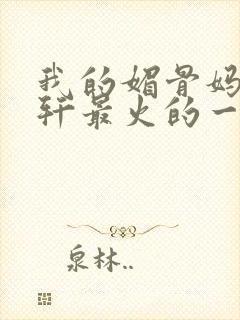 我的媚骨妈
轩最火的一
泉林..